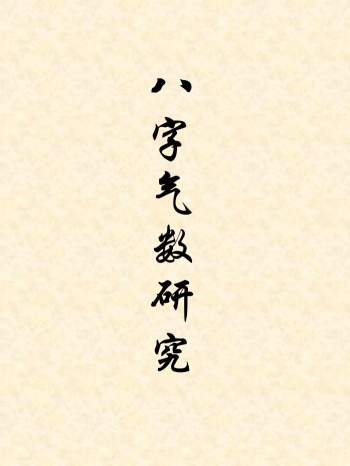 八字气数研究